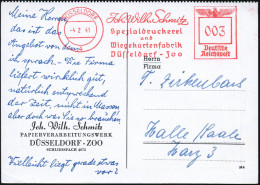 DÜSSELDORF
-4.2.41
Joh. Wilh. Schmitz
Spezialdruckerei
und
Wiegekartenfabrik
Düsseldorf-Zoo
003
Deutsche
Reichspost
Meine Herren,
das ist das
Angebot von dem
ich sprach. Die Firma
liefert wirklich gut,
natürlich entsprechend
der Zeit, nicht in Massen
aber doch was Sie so brauchen
Joh. Wilh. Schmitz
PAPIERVERARBEITUNGSWERK
DÜSSELDORF-ZOO
Vielleicht liegt grade etwas
vor?
Herrn
Firma
Halle Saale
Harz 3